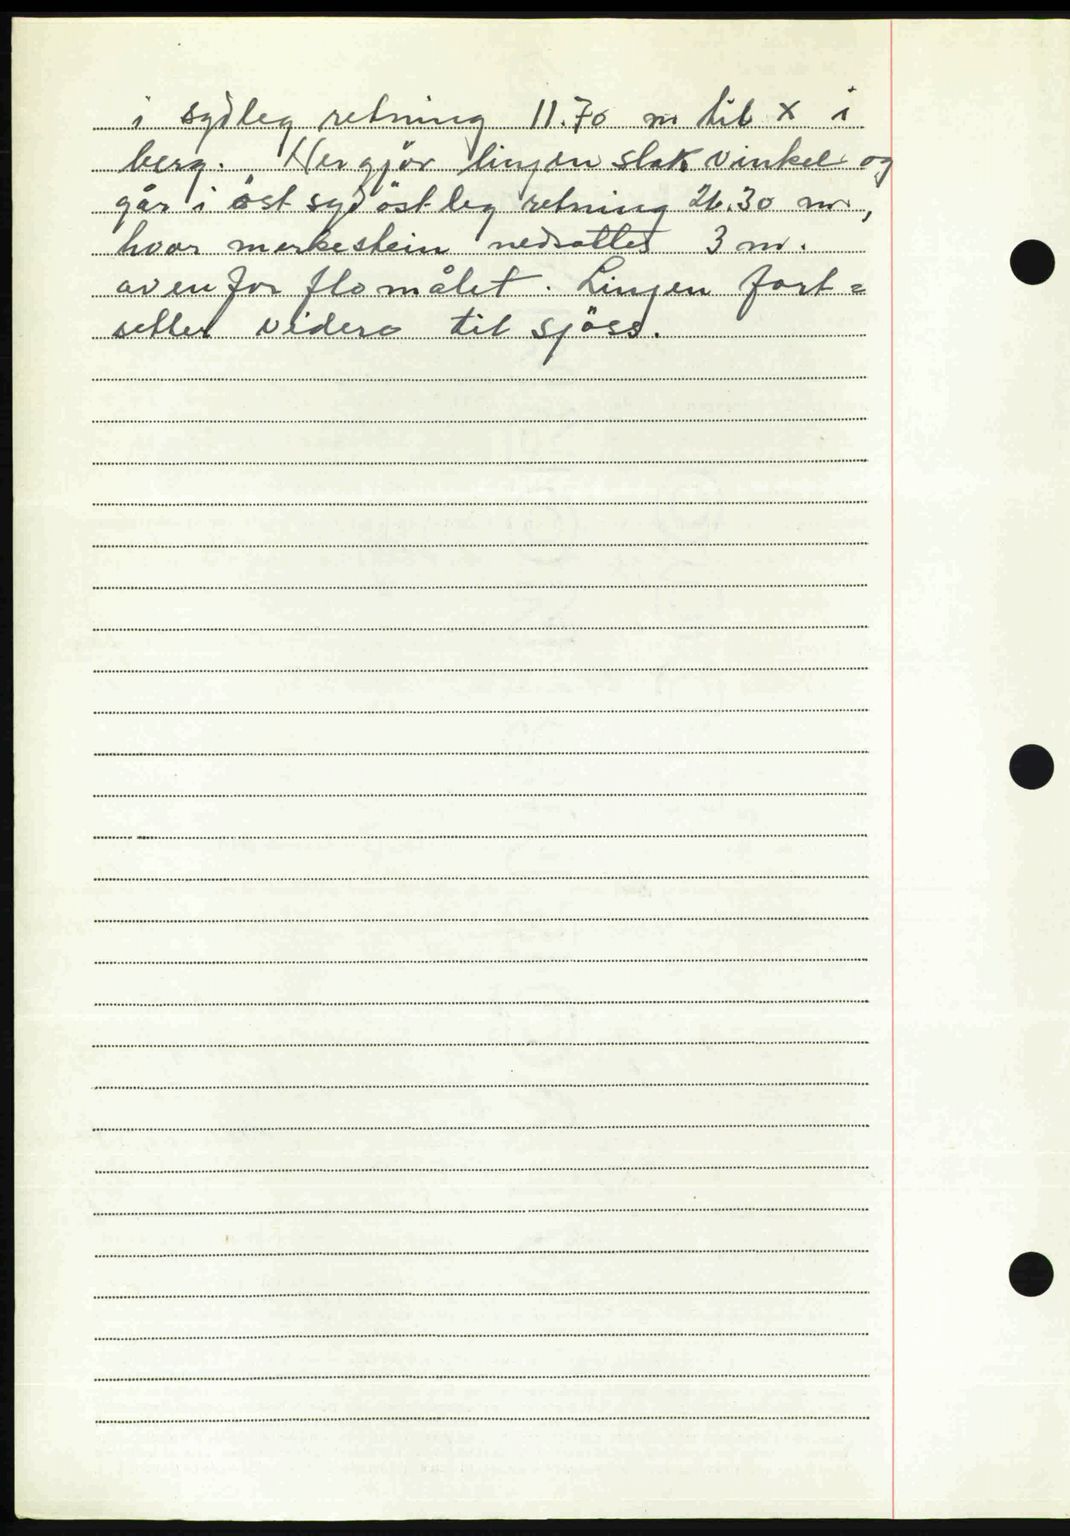 i sydleg retning 11.70 m til x i
berg. Her gjör linjen slak vinkel og
går i öst sydöstleg retning 26.30 m.,
hvor merkestein nedsattes 3 m.
ovenfor flomålet. Linjen fort=
setter videre til sjöss.